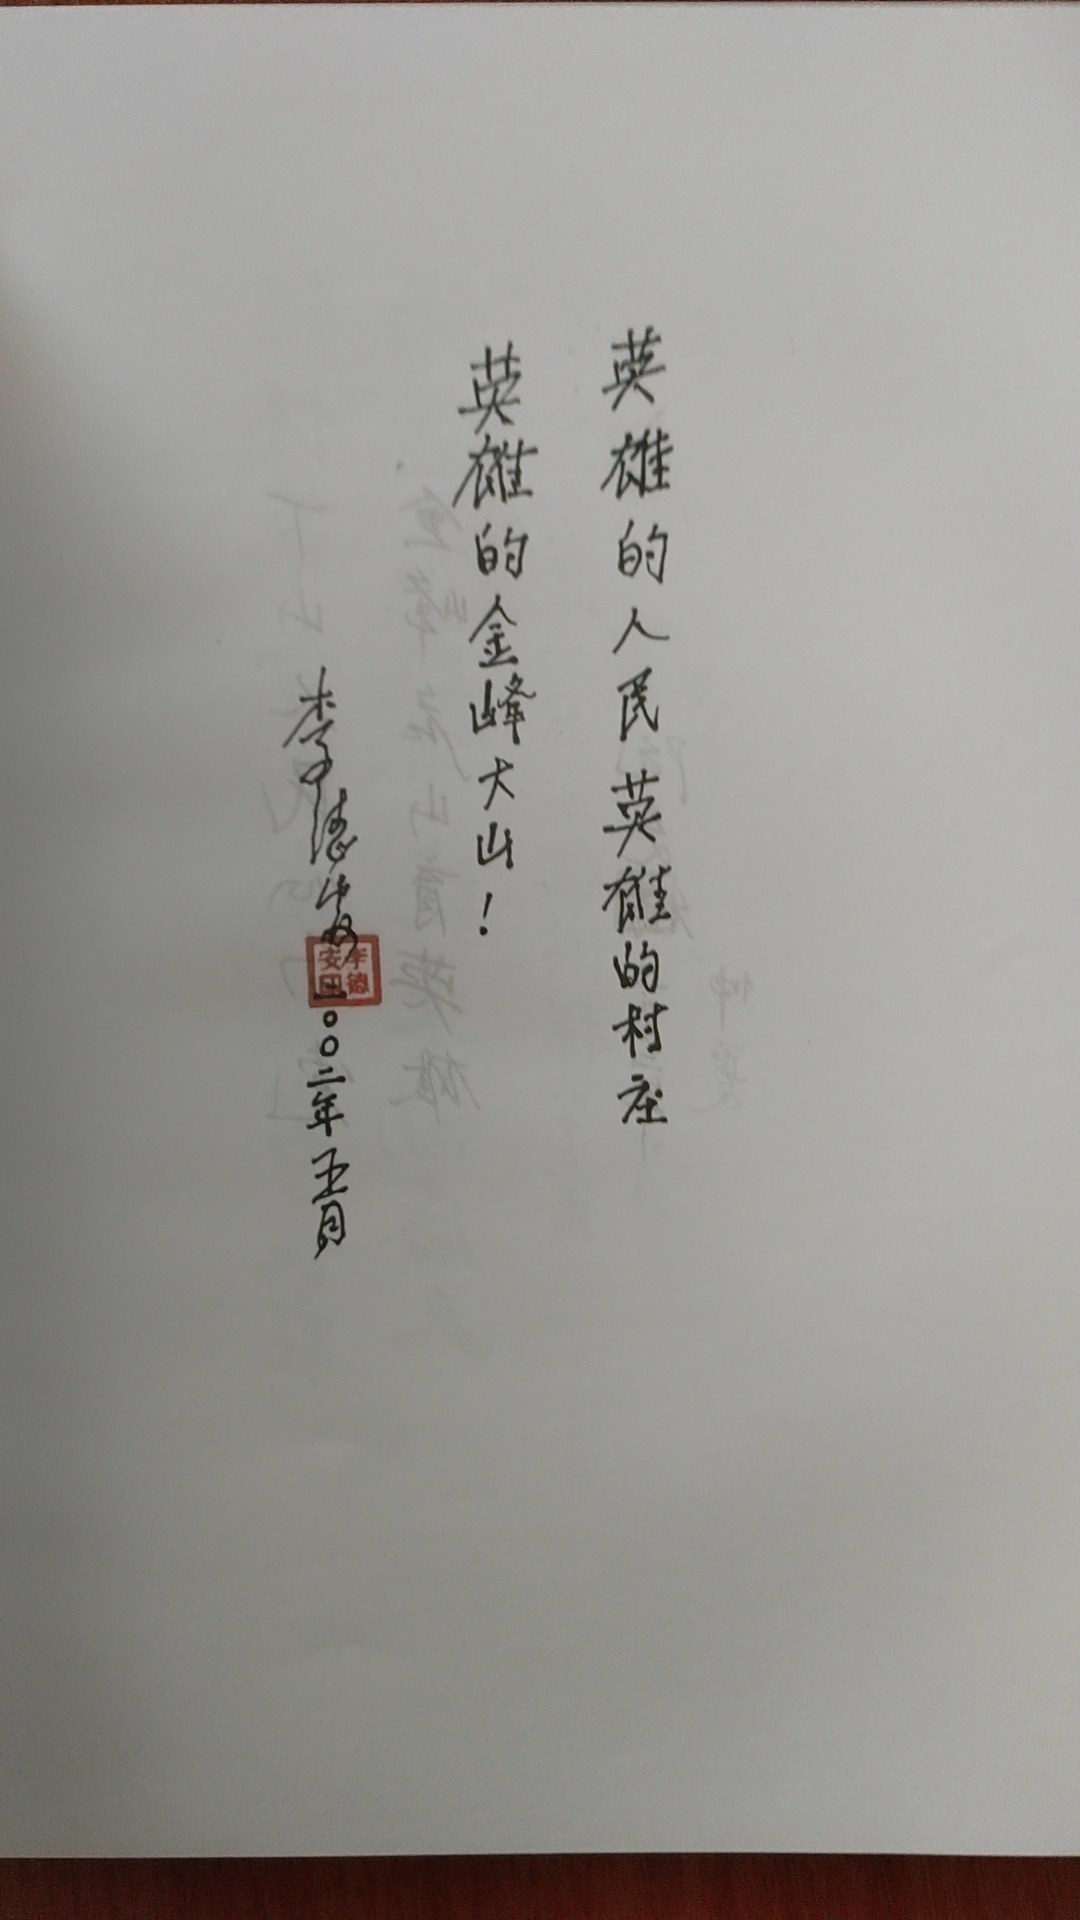 英雄的人民英雄的村庄
英雄的金峰大山！
李德安
李德
安印
二〇〇二年五月